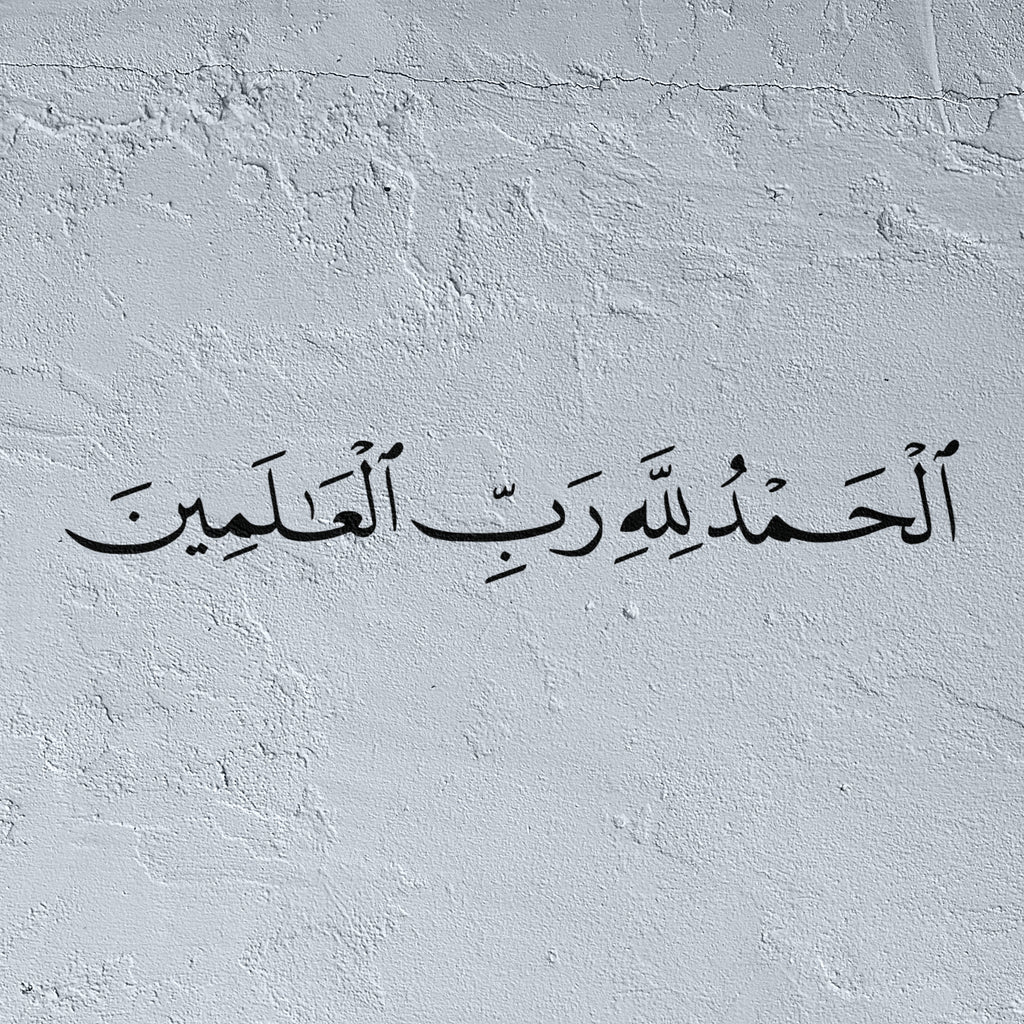 ٱلْحَمْدُ لِلَّهِ رَبِّ ٱلْعَـٰلَمِينَ